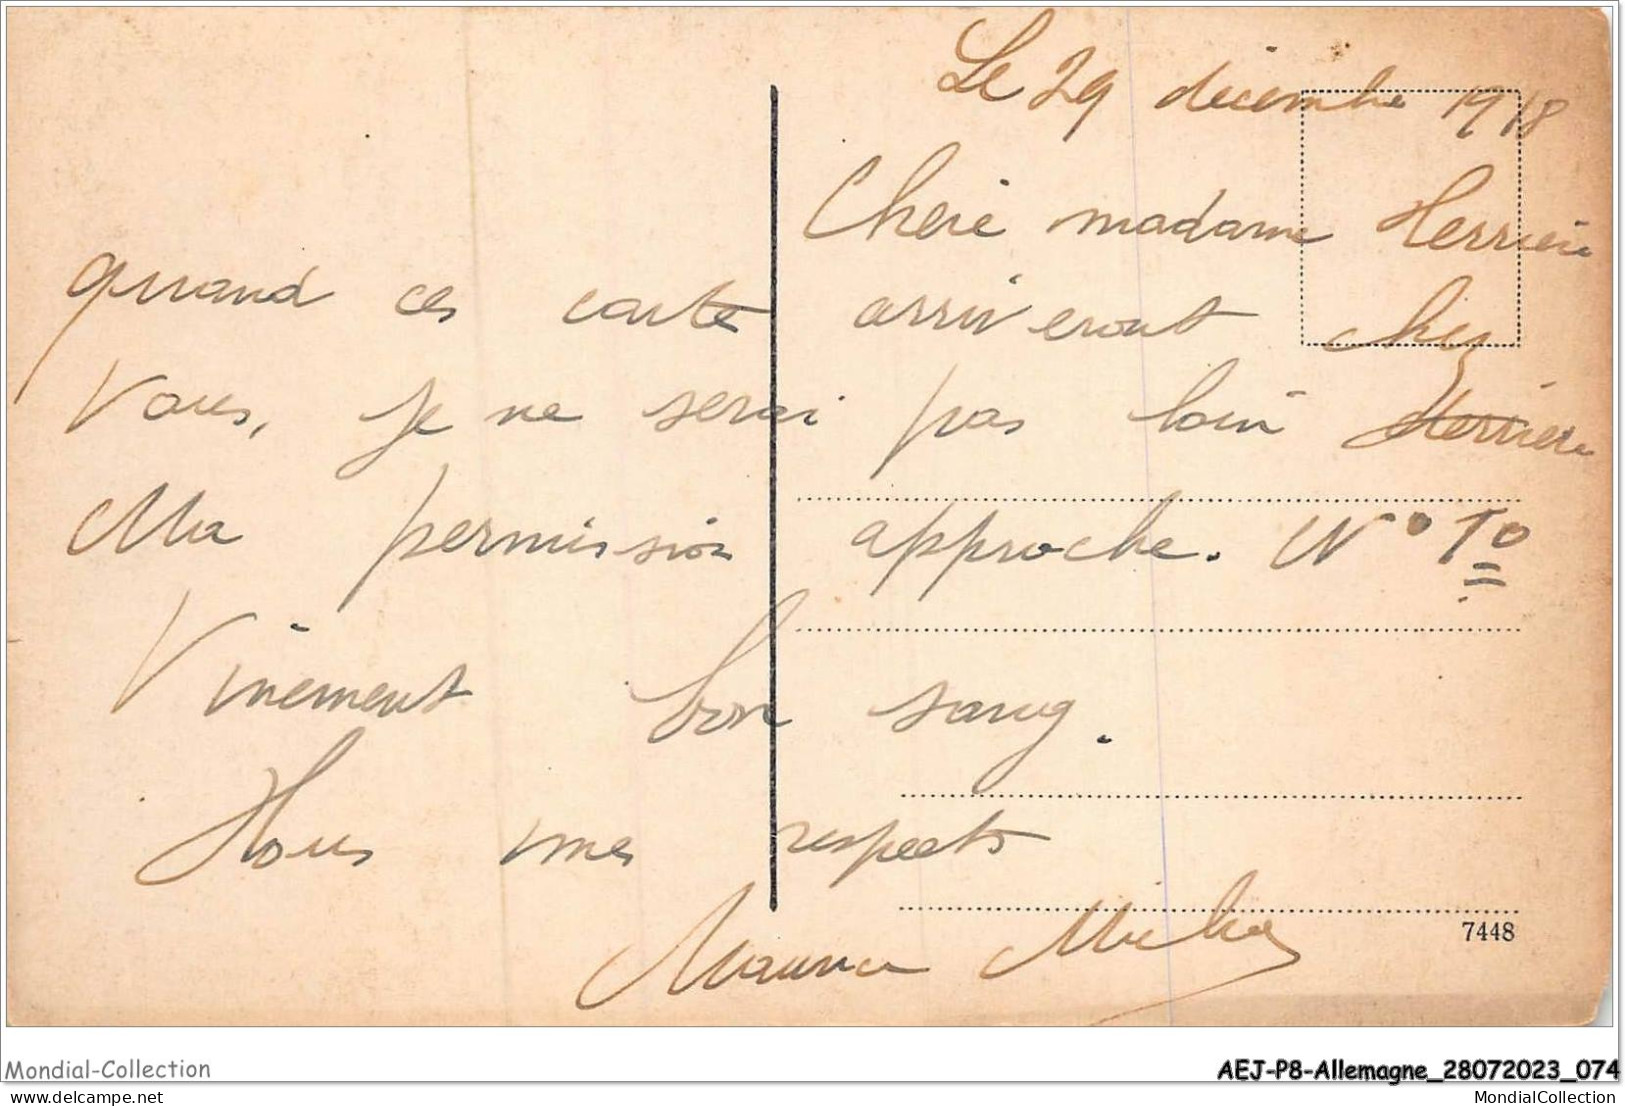 Le 29 décembre 1918
Chère madame Herrière
quand ces cartes arriveront chez
Vous, je ne serai pas loin
Ma permission approche. N° 10
Vivement bon sang.
Tous mes respects
Maurice
7448
Mondial-Collection
AEJ-P8-Allemagne_28072023_074
MondialCollection